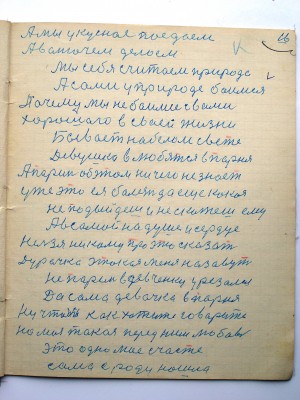 66
А мы у кусное поедаем
А вот очем делоем
мы себя считаем природе
А сами у природе боимся
Почему мы не боимся с вами
хорошого в своей жизни
Бывает на белом свете
Девушка влюбятся в парня
А парин об том ничего незнает
уже это ея болезнь да еще кокоя
не подыйдеш и нескажеш ему
А в самой на душе и сердце
Нелзя никому про это сказат
Дурачка этокоя меня назавут
не парин в девченку урезался
Да сама девачка в парня
Ну что ж как хотите говарите
но моя такая перед ним любовь
это одно мае счасте
сама с роду нашла